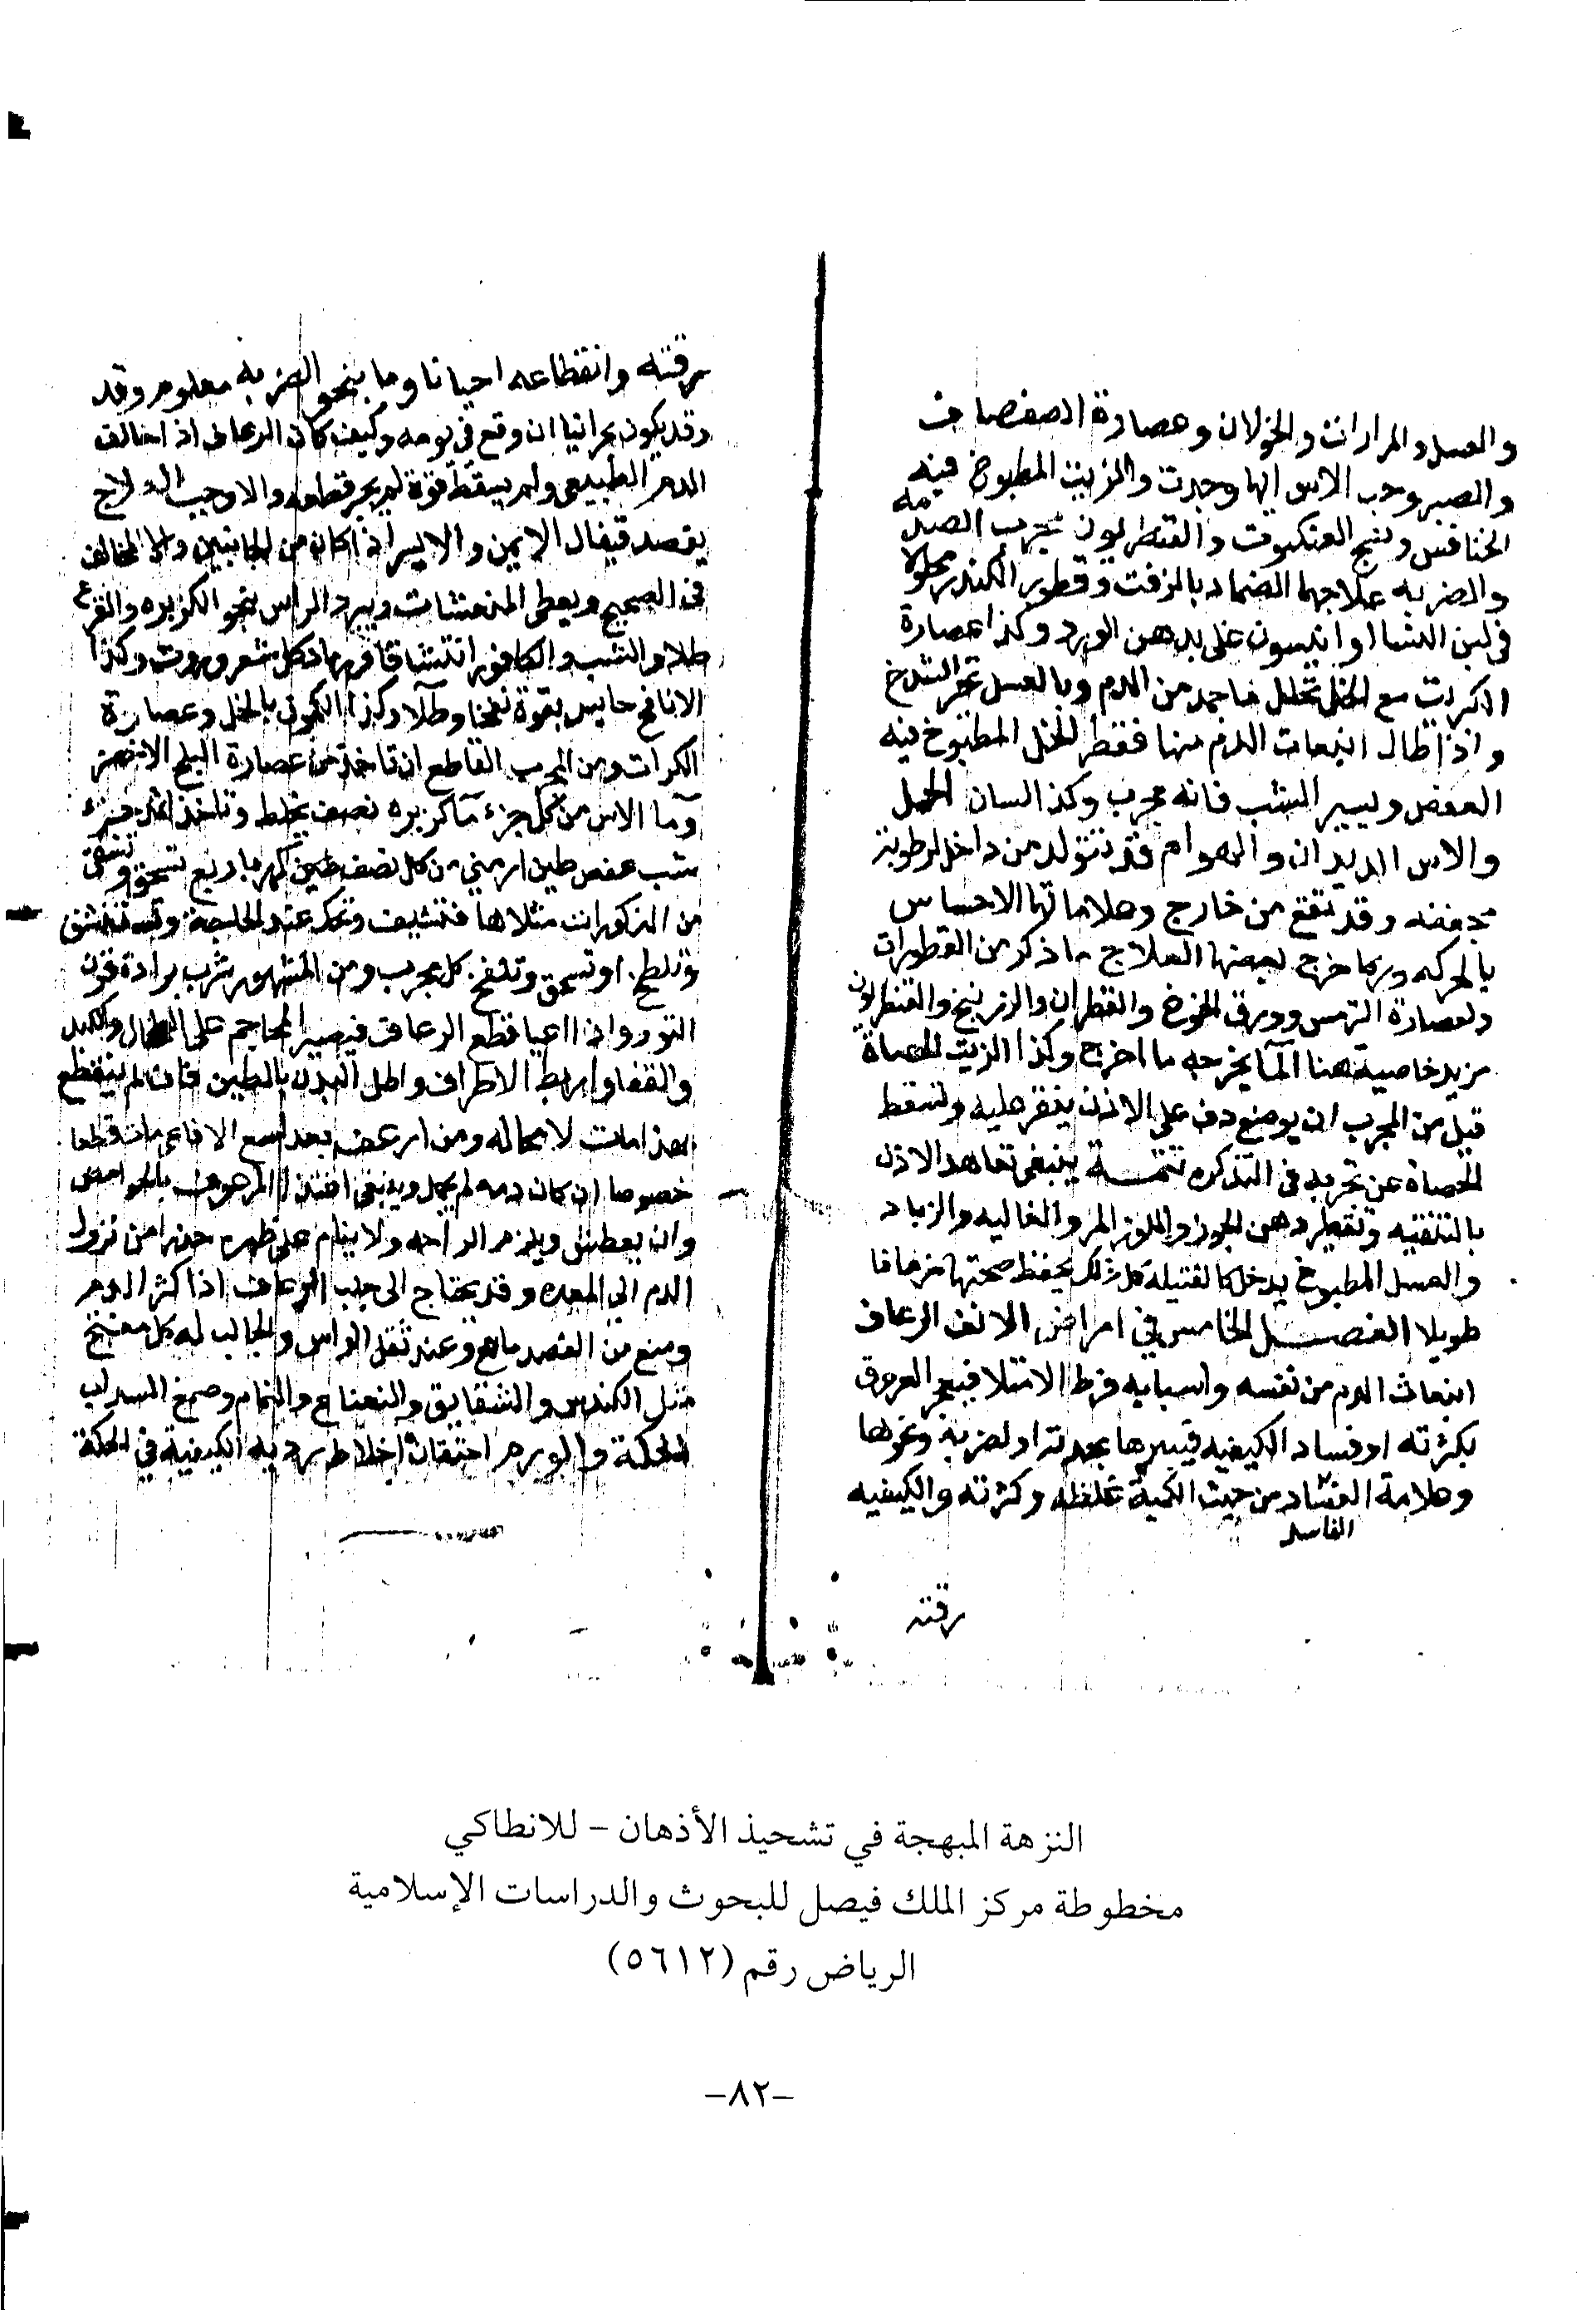 والعسل والمرارات والخولان وعصارة الصفصاف
والصبر وحب الاس ايها وجدت والزيت المطبوخ فيه
الخنافس ونسج العنكبوت والقنطريون مجرب الصدمه
والضربه علاجهما الضماد بالزفت وقطور الكندر محلولا
في لبن النسا او انيسون غلى بدهن الورد وكذا عصارة
الكرات مع الخل تحلل ما جمد من الدم وبالعسل تجبر الشدخ
واذا طال انبعاث الدم منها فقطر الخل المطبوخ فيه
العفص ويسير الشب فانه مجرب وكذا لسان الحمل
والاس الديدان والهوام قد تتولد من داخل لرطوبة
عفنه وقد تقع من خارج وعلاماتها الاحساس
بالحركه وربما خرج بعضها العلاج ما ذكر من القطورات
ولعصارة الترمس وورق الخوخ والقطران والزرنيخ والقنطريون
مزيد خاصية هنا الما يخرجه ما اخرج وكذا الزيت الحصاة
قيل من المجرب ان يوضع دف على الاذن ينقر عليه وتسقط
الحصاة عن تجربه في التذكره تتمـــة ينبغي تعاهد الاذن
بالتنقيه وتقطير دهن الجوز واللوز المر والغاليه والزباد
والعسل المطبوخ يدخل كالفتيله كل ذلك يحفظ صحتها زمانا
طويلا الفصـــل الخامس في امراض الانف الرعاف
انبعاث الدم من نفسه واسبابه فرط الامتلا فيفجر العروق
بكثرته او فساد الكيفيه فيسيرها بحدته او لضربة ونحوها
وعلامة الفساد من حيث الكمية غلظه وكثرته والكيفيه
الفاسد
رقته
رقته وانقطاعه احيانا وما بنحو الضربه معلوم وقد
وقد يكون بحرانيا ان وقع في يومه وكيف كان الرعاف اذا خالف
الدم الطبيعي ولم يسقط قوة لم يجز قطعه والا وجب العلاج
بفصد قيفال الايمن والايسر اذا كان من الجانبين والا المخالف
في الصحيح ويعطى المنعشات ويبرد الراس بنحو الكزبره والقرع
طلا والشب والكافور انتشاقا ورماد كل شعر وروث وكذا
الانافح حابس بقوة نفخا وطلآ وكذا الكمون بالخل وعصارة
الكرات ومن المجرب القاطع ان تاخذ من عصارة البلح الاخضر
وما الاس من كل جزء ما كزبره نصف يخلط وتاخذ اثمد جزء
شب عفص طين ارمني من كل نصف طين كهربا ربع تسحق وتسقى
من المذكورات مثلاها فتشيف وتحك عند الحاجة وتستنشق
وتلطخ او تسحق وتنفخ كل مجرب ومن المشهور شرب برادة قرن
الثور واذا اعيا قطع الرعاف فيصير المحاجم على الطحال والكبد
والقفا واربط الاطراف واطل البدن بالطين فان لم ينقطع
بهذا مات لا محاله ومن ارعف بعد لسع الافاعي مات قطعا
خصوصا ان كان دمه لم يجمد وينبغي اغتذا المرعوف بالحوامض
وان يعطش ويلزم الراحه ولا ينام على ظهره حذرا من نزول
الدم الى المعده وقد يحتاج الى جلب الرعاف اذا كثر الدم
ومنع من الفصد مانع وعند ثقل الراس والجالب له كل مفتح
مثل الكندس والشقايق والنعناع والنمام وصمغ السداب
الحكة والورم احتقان اخلاط رديه الكيفية في الحكة
النزهة المبهجة في تشحيذ الأذهان – للانطاكي
مخطوطة مركز الملك فيصل للبحوث والدراسات الإسلامية
الرياض رقم (٥٦١٢)
–٨٢–